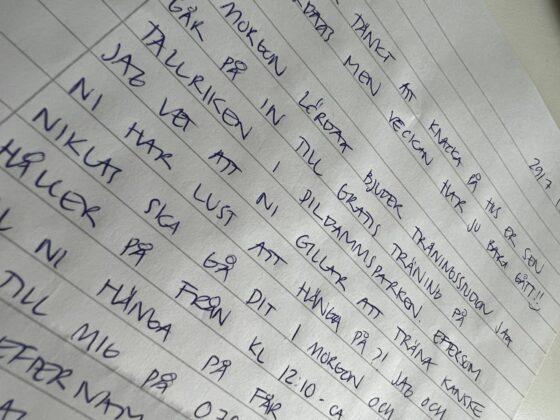 29/7
TÄNKT ATT KNACKA PÅ HOS ER SEN
MEN VECKAN HAR JU BARA GÅTT!!
MORGON LÖRDAG BJUDER TRÄNINGSSTUDION JAG
GÅR PÅ IN TILL GRATIS TRÄNING PÅ
TALLRIKEN I PILDAMMSPARKEN. EFTERSOM
JAG VET ATT NI GILLAR ATT TRÄNA KANSKE
NI HAR LUST ATT HÄNGA PÅ? JAG OCH
NIKLAS SKA GÅ DIT I MORGON OCH
HÅLLER PÅ FRÅN KL 12.10 - CA
L NI HÄNGA PÅ FÅR
TILL MIG PÅ 070
EFTERNAM